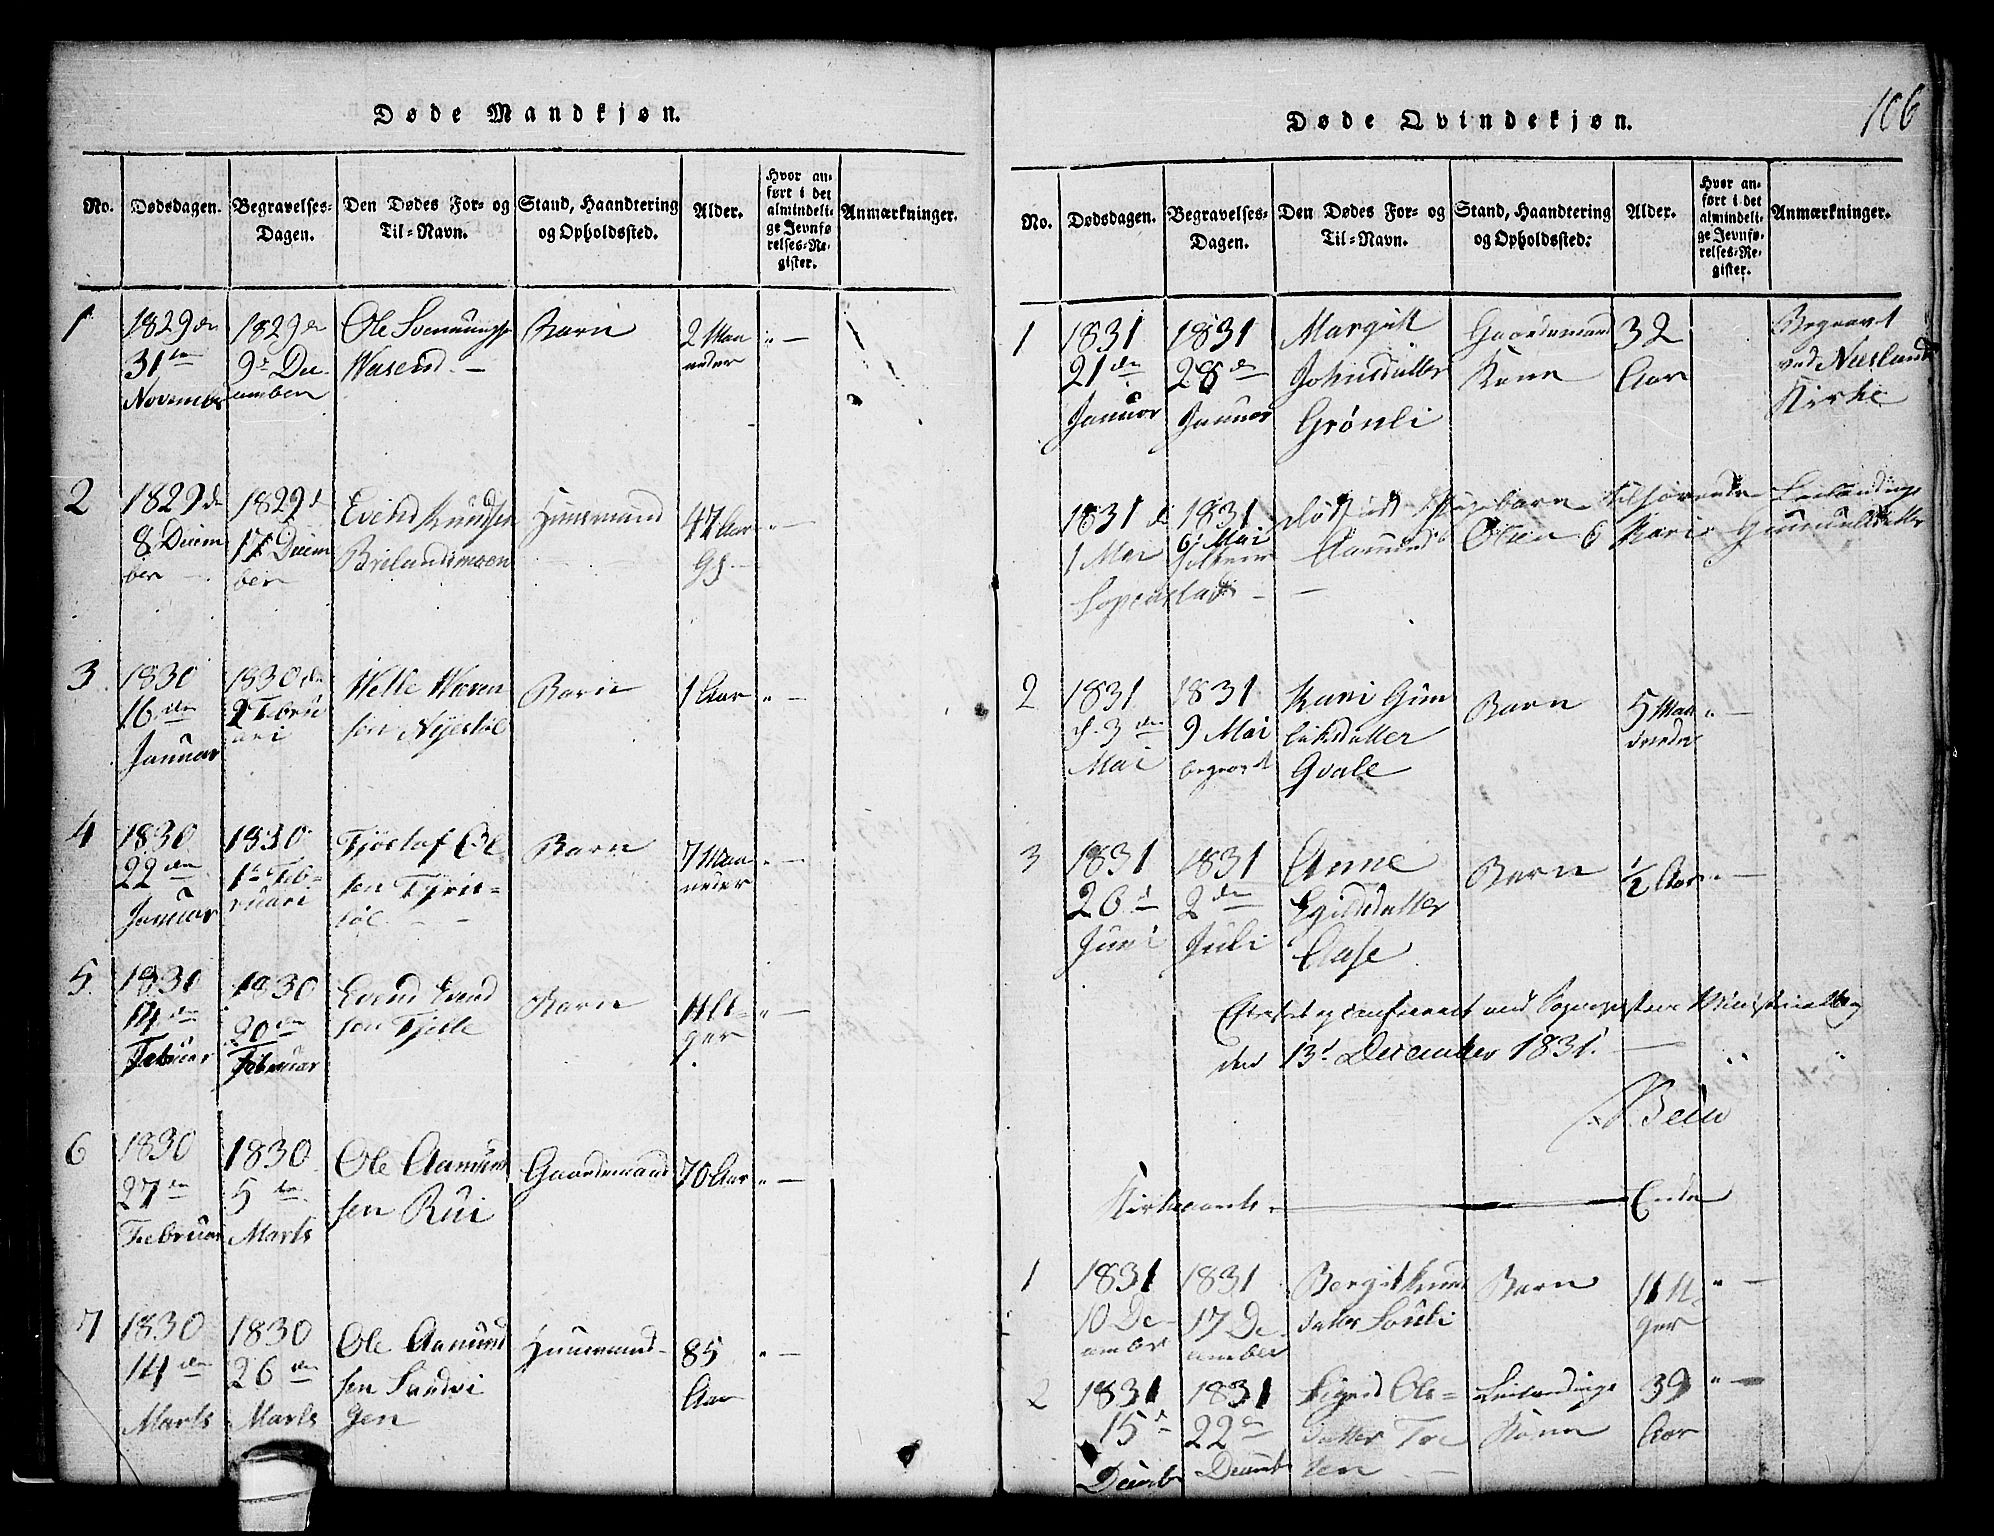 Døde Mandkjøn.
No.
Dødsdagen.
Begravelses-
Dagen.
Den Dødes For- og
Til-Navn.
Stand, Haandtering
og Opholdssted.
Alder.
Hvor an-
ført i det
almindeli-
ge Jevnfø-
relses-Re-
gister.
Anmærkninger.
1
1829 den
31te
November
1829 den
9de De-
cember
Ole
Barn
2 Maa
neder
2
1829 d
8 Decem
ber
1829 d
17 Decem
ber
Evend Knudsen
Brilandsmoen
Huusmand
47 Aar
3
1830
16 den
Januar
1830 den
2 Febru
ari
Barn
1 Aar
4
1830
22 den
Januar
1830
1te Feb-
ruari
Tjøstof Ol
sen
Barn
7 Maa
neder
5
1830
14 den
Februar
1830
20 den
Februar
Evend Evend
sen Tjelle
Barn
11 U-
ger
6
1830
27 den
Februar
1830
5 den
Marts
Ole Aamund
sen Rui
Gaardemand
70 Aar
7
1830
14 den
Marts
1830
26 den
Marts
Ole Aamund
sen Sandvi
gen
Huusmand
85
Aar
Døde Qvindekjøn.
106
No.
Dødsdagen.
Begravelses-
Dagen.
Den Dødes For- og
Til-Navn.
Stand, Haandtering
og Opholdssted:
Alder.
Hvor an-
ført i det
almindeli-
ge Jevnfø-
relses-Re-
gister.
Anmærkninger.
1
1831
21 den
Januar
1831
28 den
Januar
Margit
Johnsdatter
Grønli
Gaardemand
Kone
32
Aar
Begravet
ved Næsland
Kirke
1831 d
1 Mai
1831
6 Mai
Olsen & Kari Gunnulsdatter
2
1831
d. 3 den
Mai
1831
9 Mai
begravet
Kari Gun
leiksdatter
Qvale
Barn
5 Maa
neder
3
1831
26 d
Juni
1831
2 den
Juli
Anne
Egilsdatter
Aase
Barn
1/2 Aar
Efterset og confereret med Sognepræstens Ministerialbog
den 13de December 1831.
Kirkeaarets
Ende
1
1831
10 De-
cember
1831
17 De-
cember
Bergit Knud
datter
Barn
11 U-
ger
2
1831
15 d
Decemb
1831
22 den
Decemb
Sigrid Ols-
datter
Leilændings
Kone
39
Aar